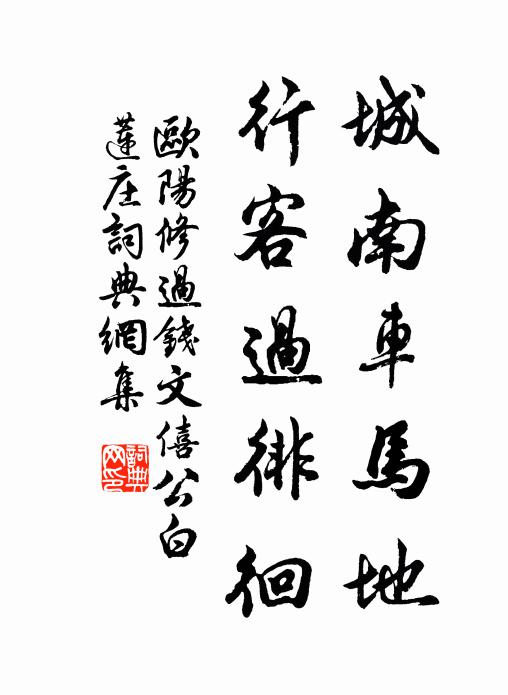 城南車馬地
行客過徘徊
歐陽修過錢文僖公白
蓮庄詞典網集
詞典
网印